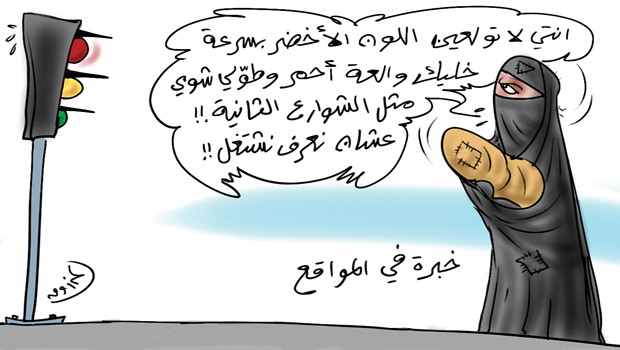 انتي لا تولعين اللون الأخضر بسرعة
خليك والعة أحمر وطوّلي شوي
مثل الشوارع الثانية.!!
عشان نعرف نشتغل!!
خبرة في المواقع